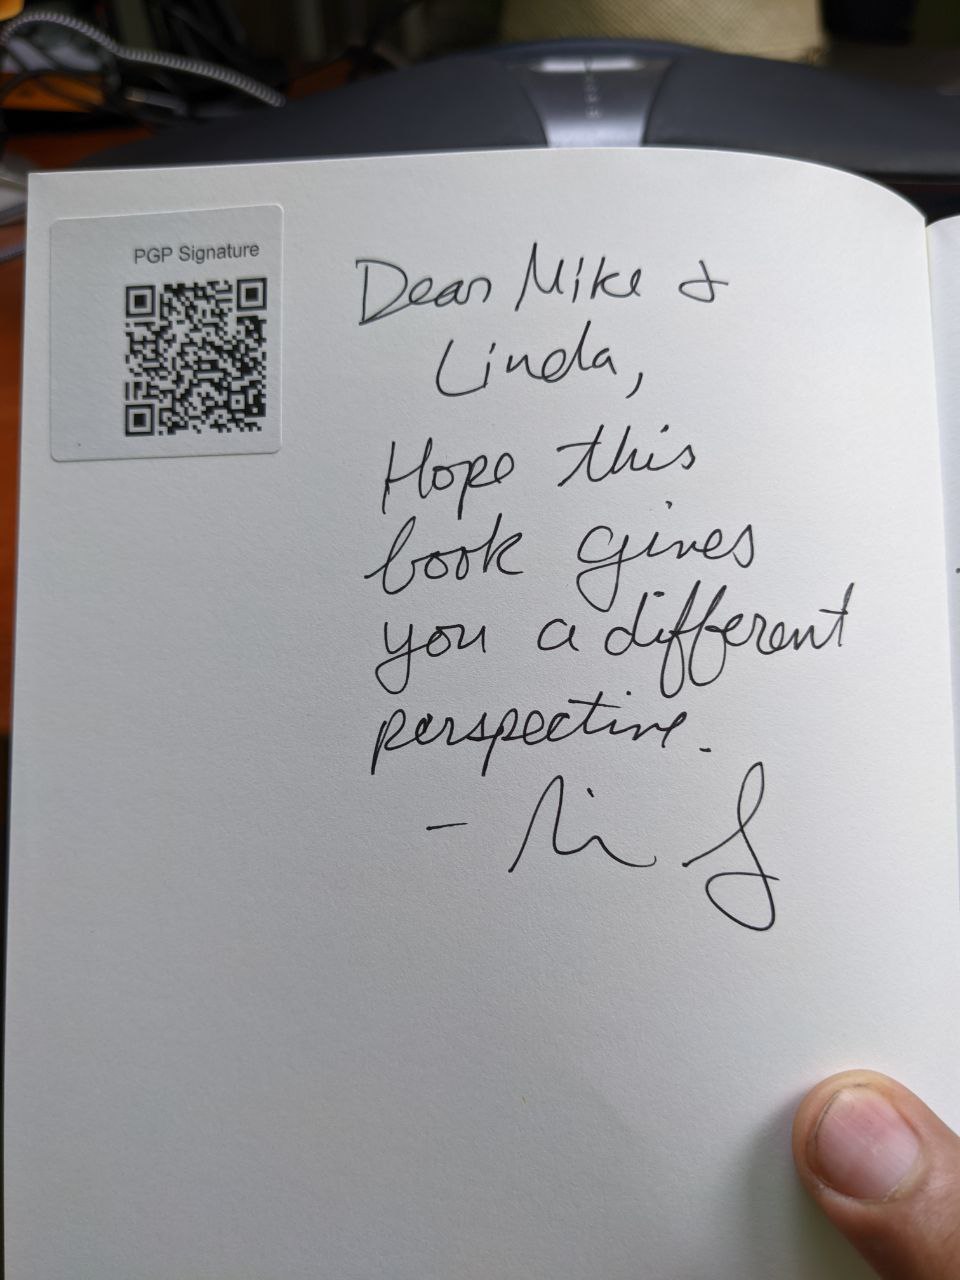 PGP Signature
Dear Mike &
Linda,
Hope this
book gives
you a different
perspective.
-